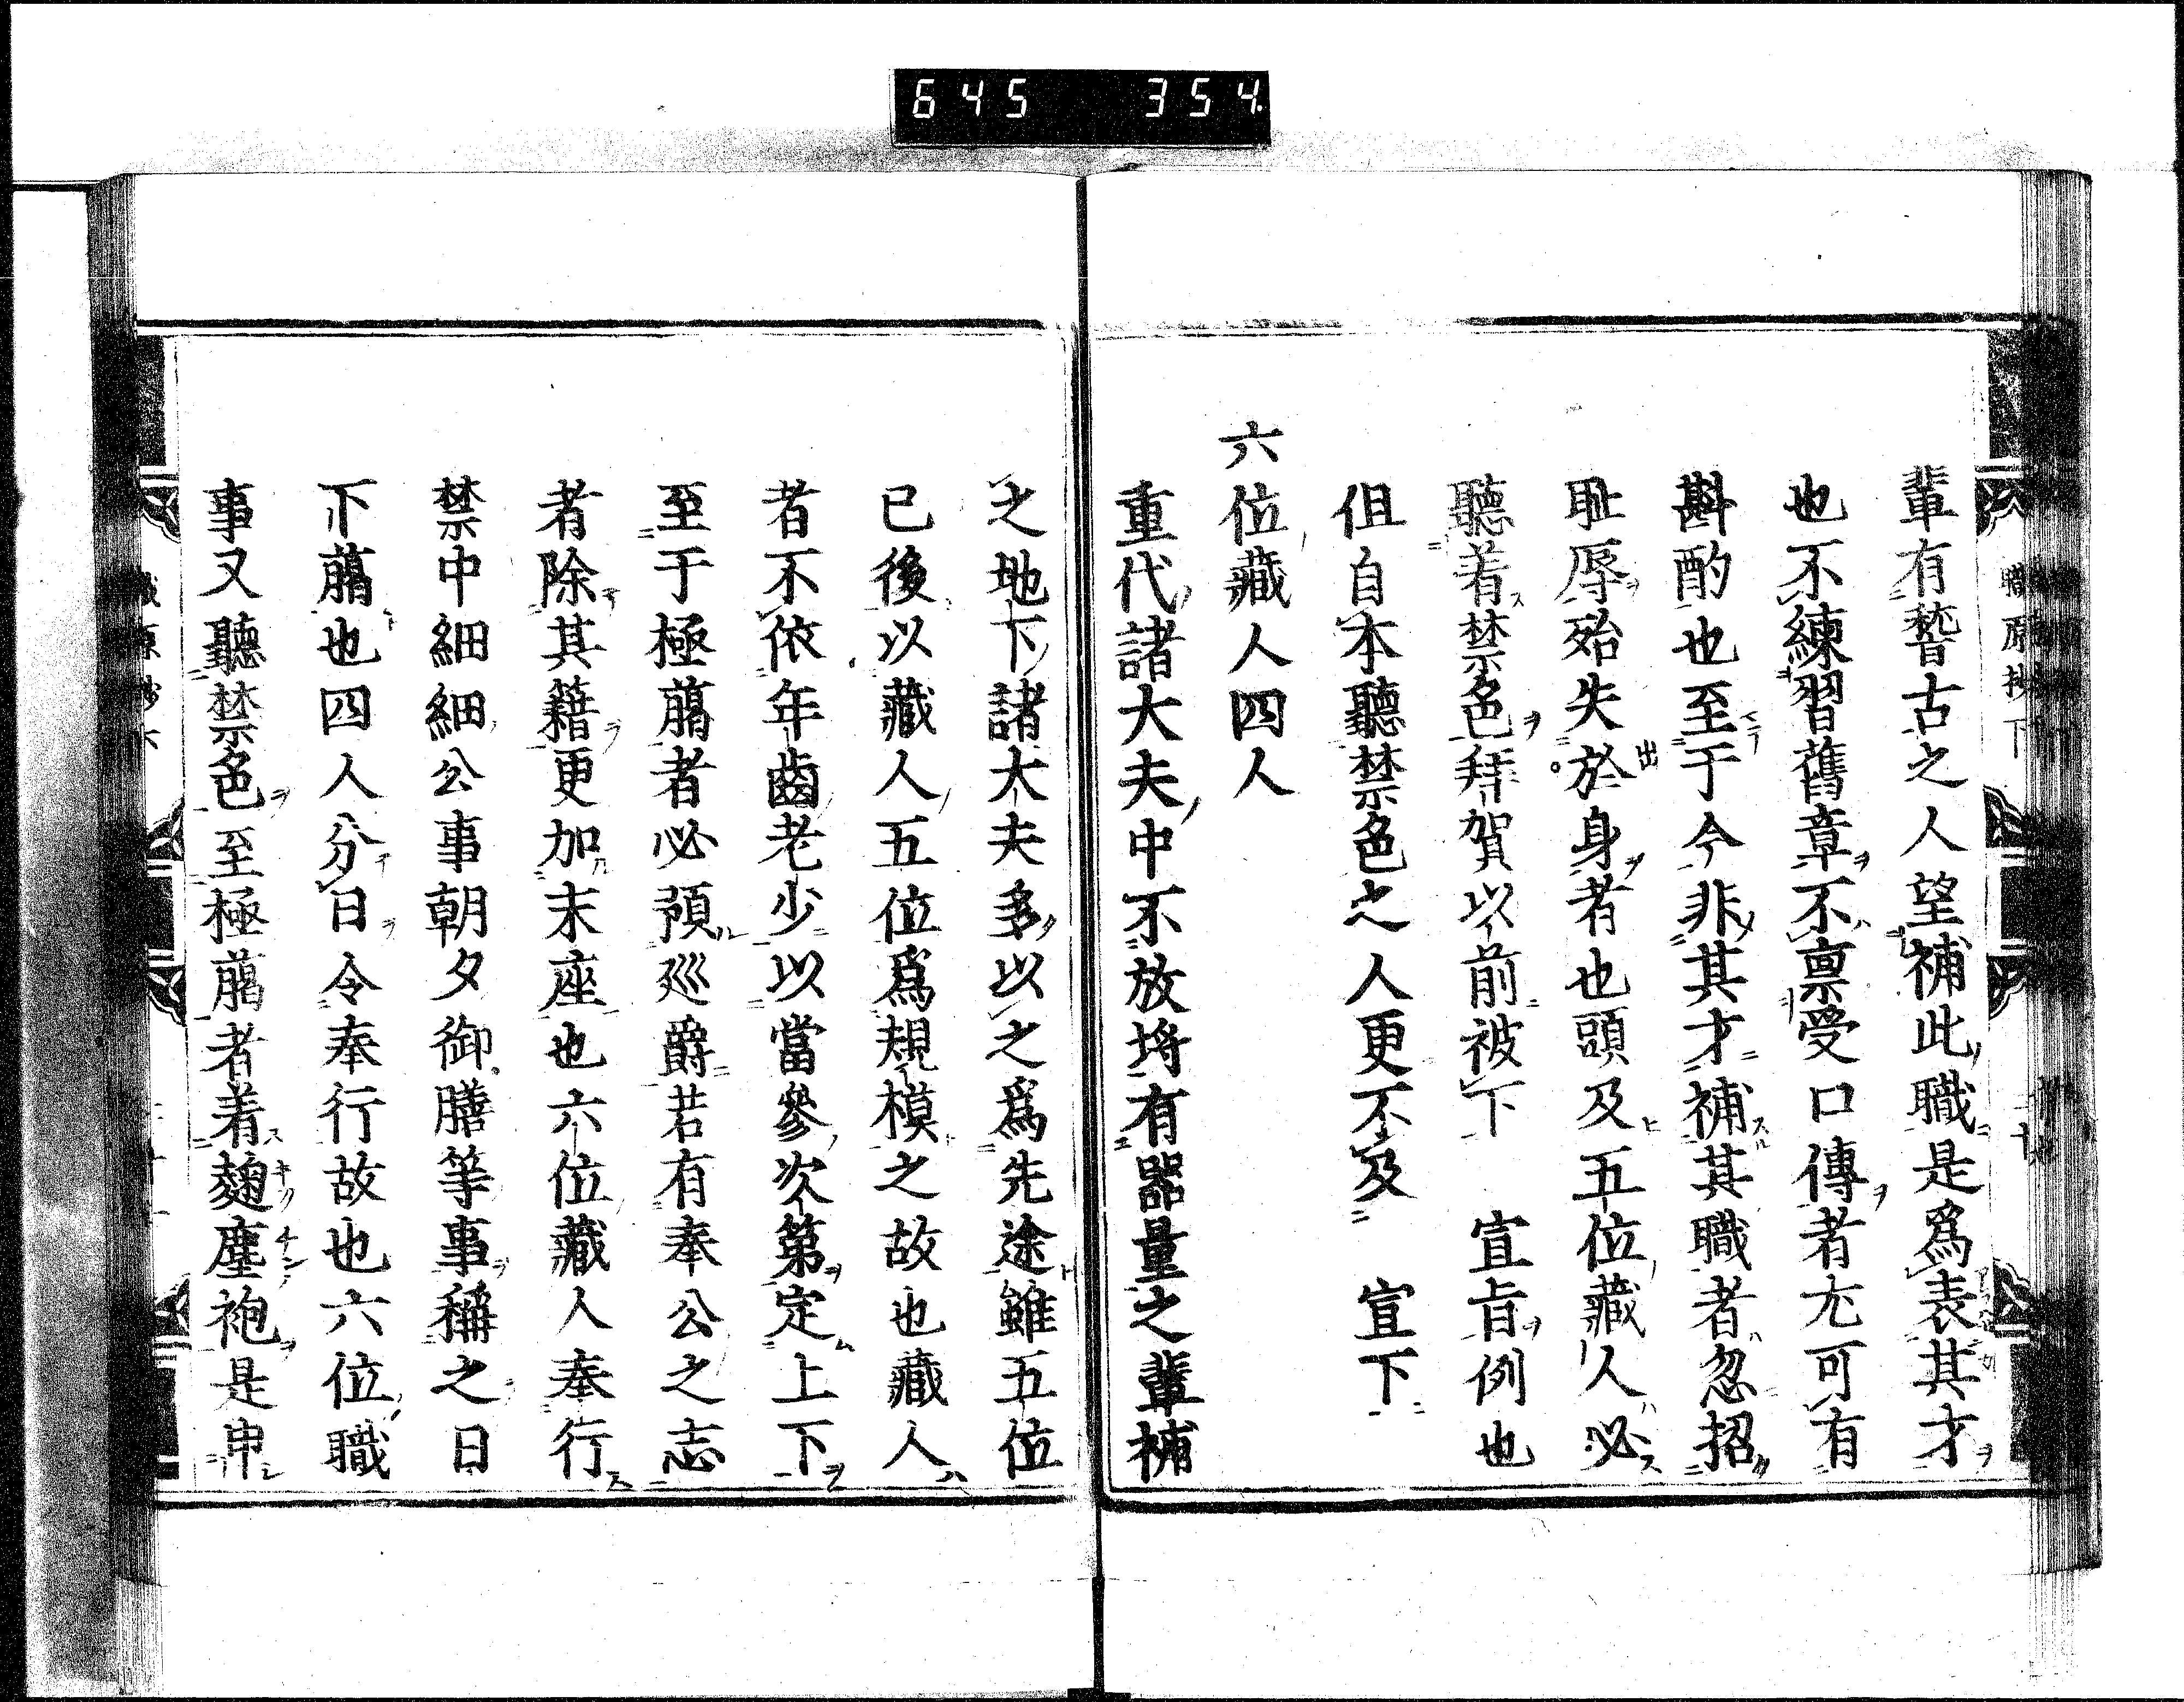 645 354
職原抄下
輩有稽古之人望補此職是爲表其才
也不練習舊章不稟受口傳者尤可有
斟酌也至于今非其才補其職者忽招
耻辱殆失於身者也頭及五位藏人必
聽着禁色拜賀以前被下 宣旨例也
但自本聽禁色之人更不及 宣下
六位藏人四人
重代諸大夫中不放埒有器量之輩補
之地下諸大夫多以之爲先途雖五位
已後以藏人五位爲規模之故也藏人
者不依年齒老少以當參次第定上下
至于極﨟者必預巡爵若有奉公之志
者除其籍更加末座也六位藏人奉行
禁中細細公事朝夕御膳等事稱之日
下﨟也四人分日令奉行故也六位職
事又聽禁色至極﨟者着麹塵袍是申